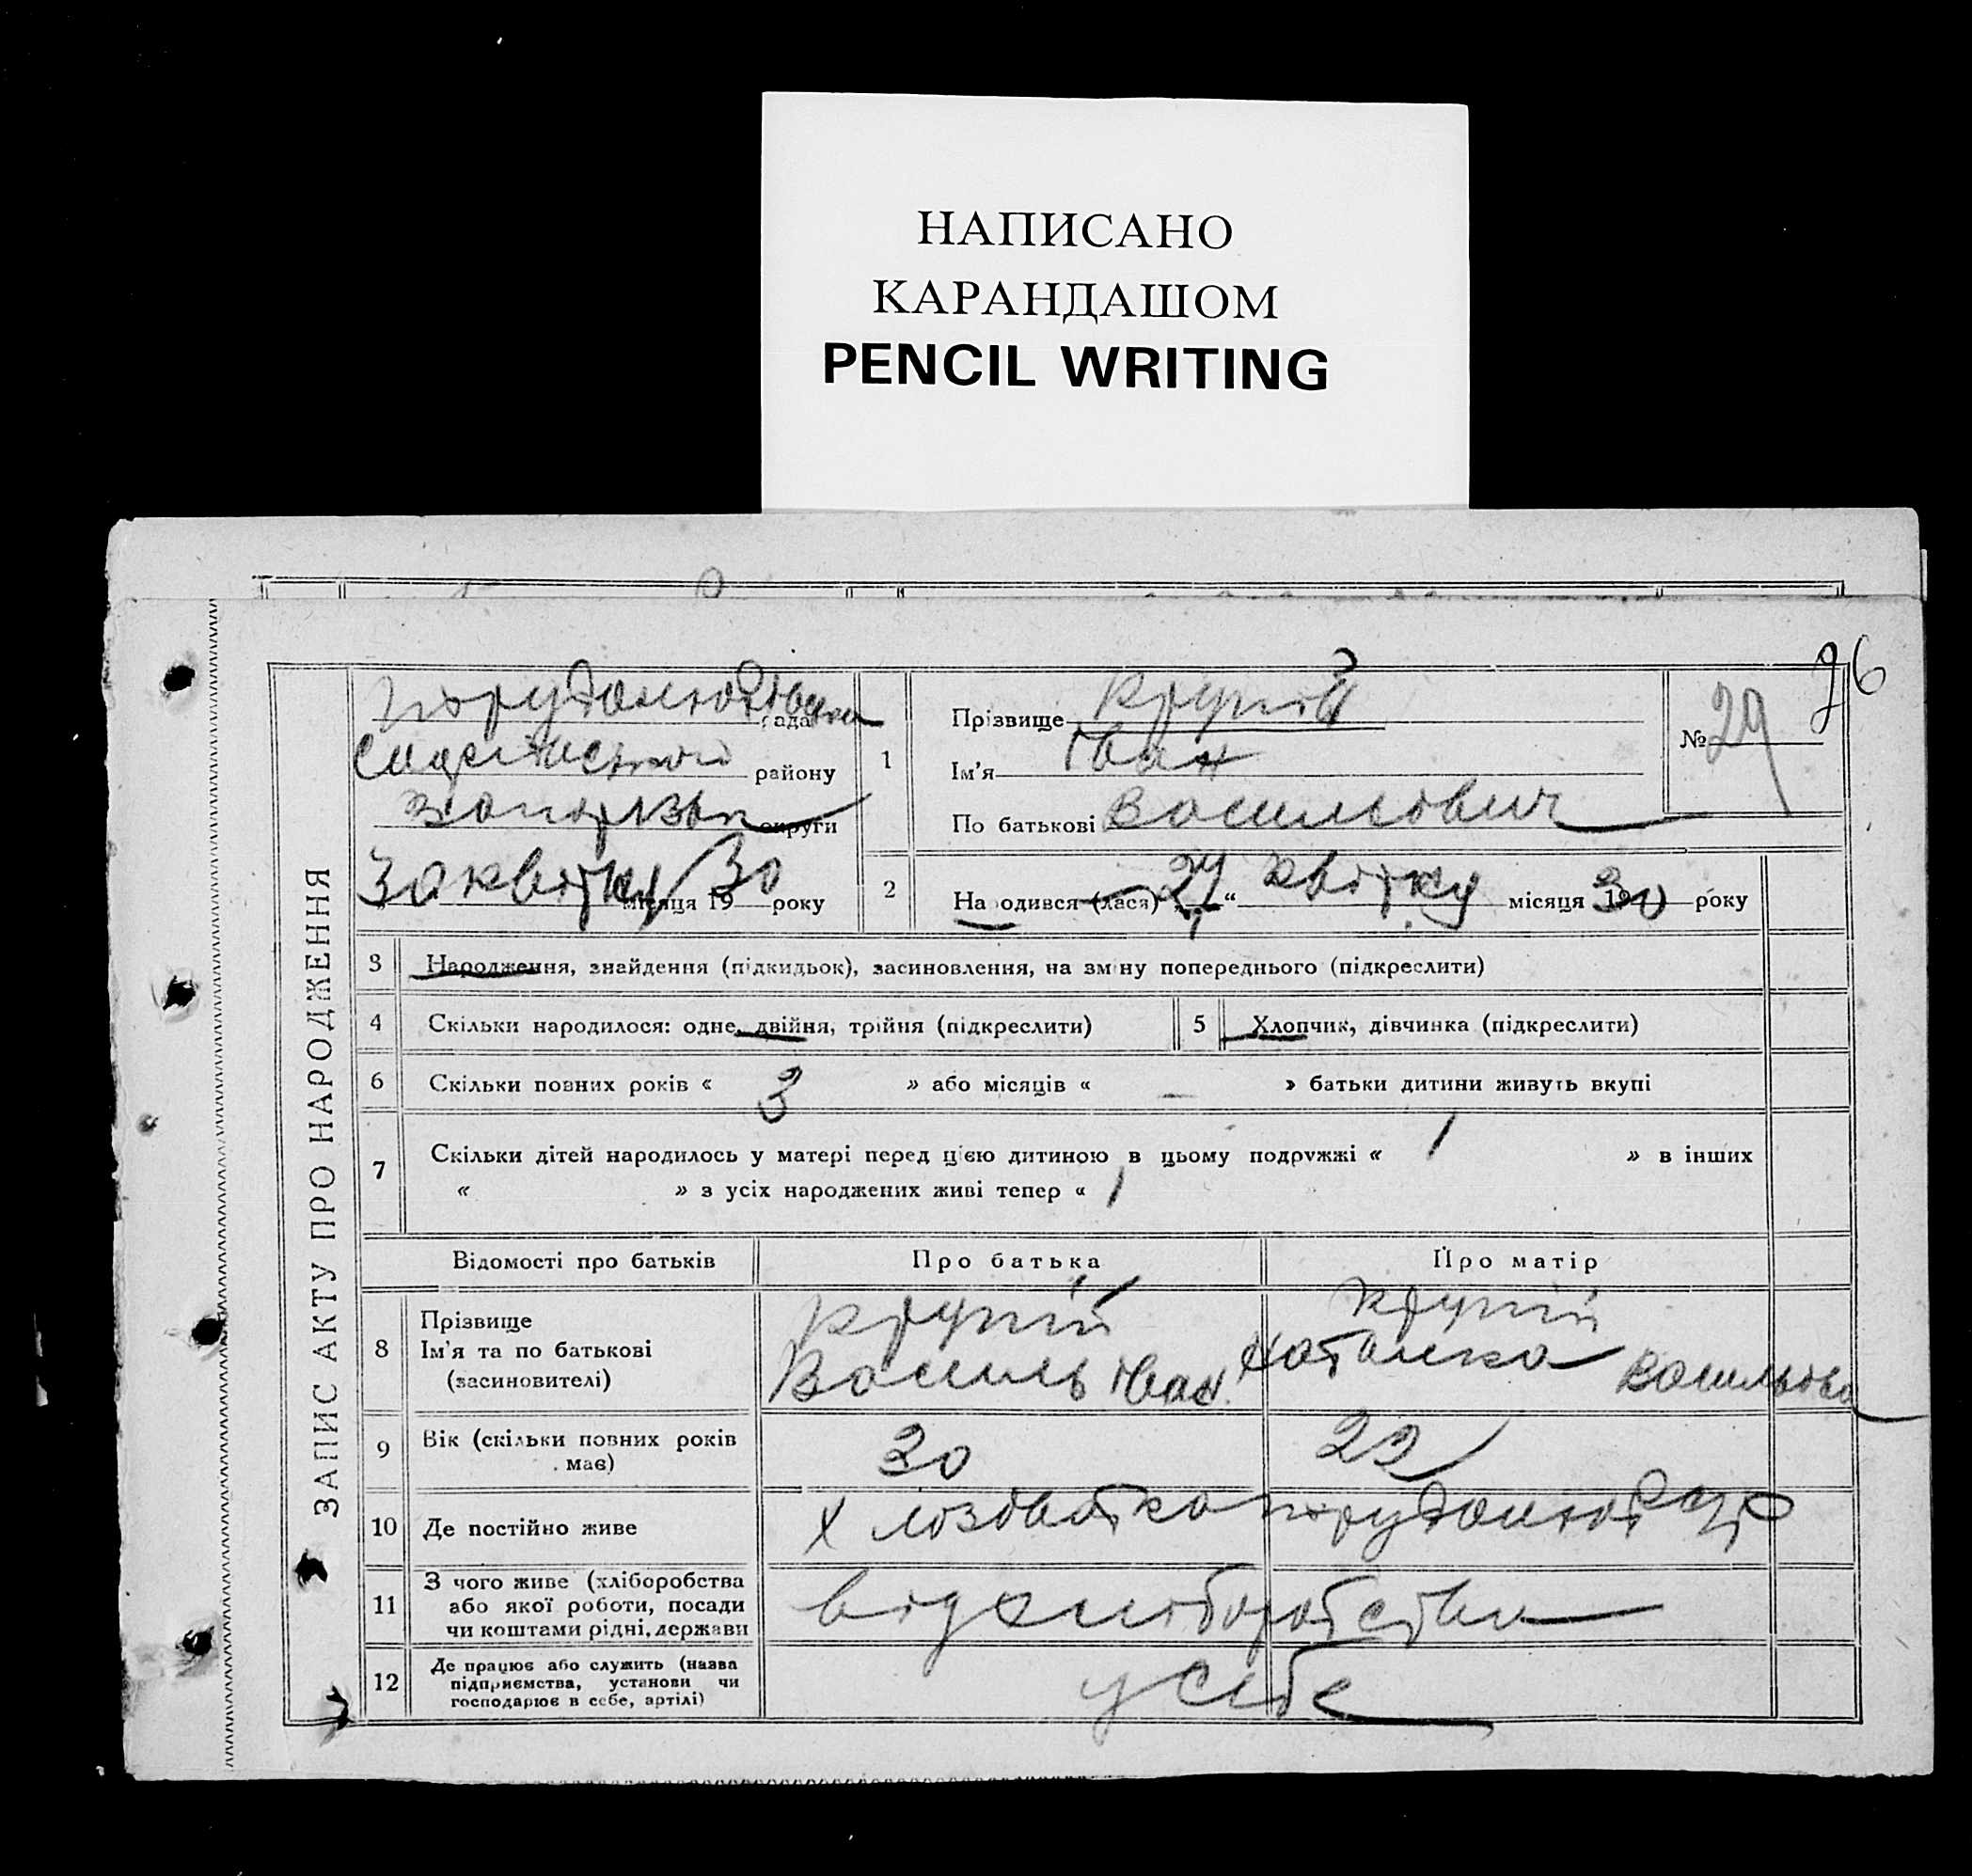 НАПИСАНО
КАРАНДАШОМ
PENCIL WRITING
26
рада
району
округи
30 квітня місяця 1930 року
ЗАПИС АКТУ ПРО НАРОДЖЕННЯ
1
Прізвище Крупій
Ім'я Іван
По батькові Васильович
№ 29
2
Народився (лася) „ “ квітня місяця 1930 року
3 Народження, знайдення (підкидьок), засиновлення, на зміну попереднього (підкреслити)
4 Скільки народилося: одне, двійня, трійня (підкреслити)
5 Хлопчик, дівчинка (підкреслити)
6 Скільки повних років « 3 » або місяців « — » батьки дитини живуть вкупі
7 Скільки дітей народилось у матері перед цією дитиною в цьому подружжі « 1 » в інших
« » з усіх народжених живі тепер « 1
Відомості про батьків
Про батька
Про матір
8 Прізвище
Ім'я та по батькові
(засиновителі)
Крупій
Василь Іван.
Крупій
Наталка Васильовна
9 Вік (скільки повних років має)
30
22
10 Де постійно живе
Х
11 З чого живе (хліборобства
або якої роботи, посади
чи коштами рідні, держави
від хліборобства
12 Де працює або служить (назва
підприємства, установи чи
господарює в себе, артілі)
у себе